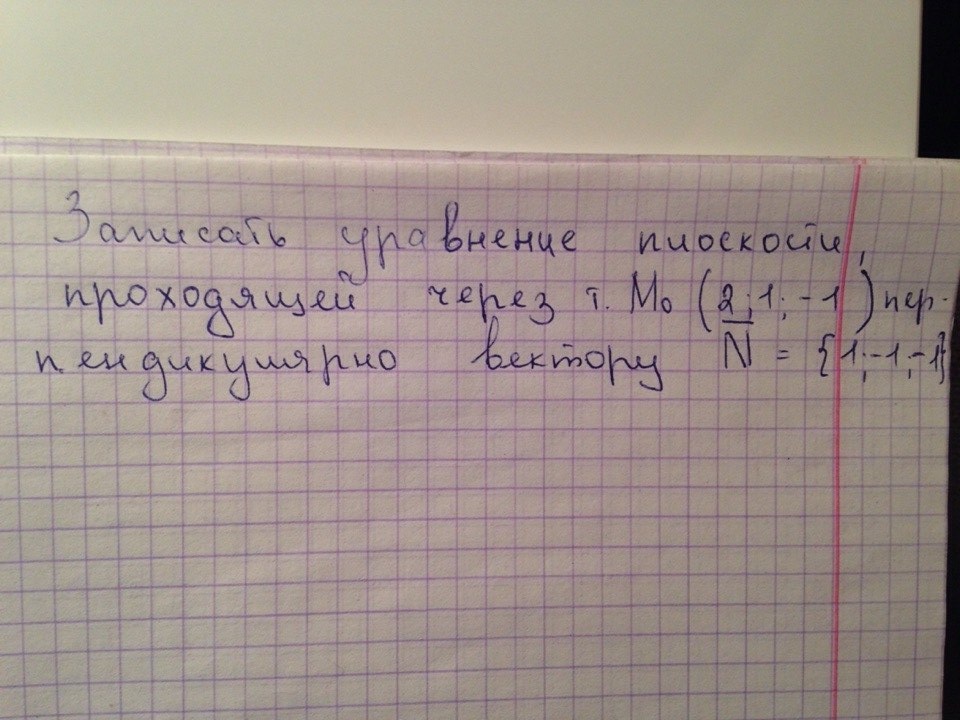 Записать уравнение плоскости,
проходящей через т. M₀ (2; 1; -1) пер-
пендикулярно вектору N̅ = {1; -1; -1}